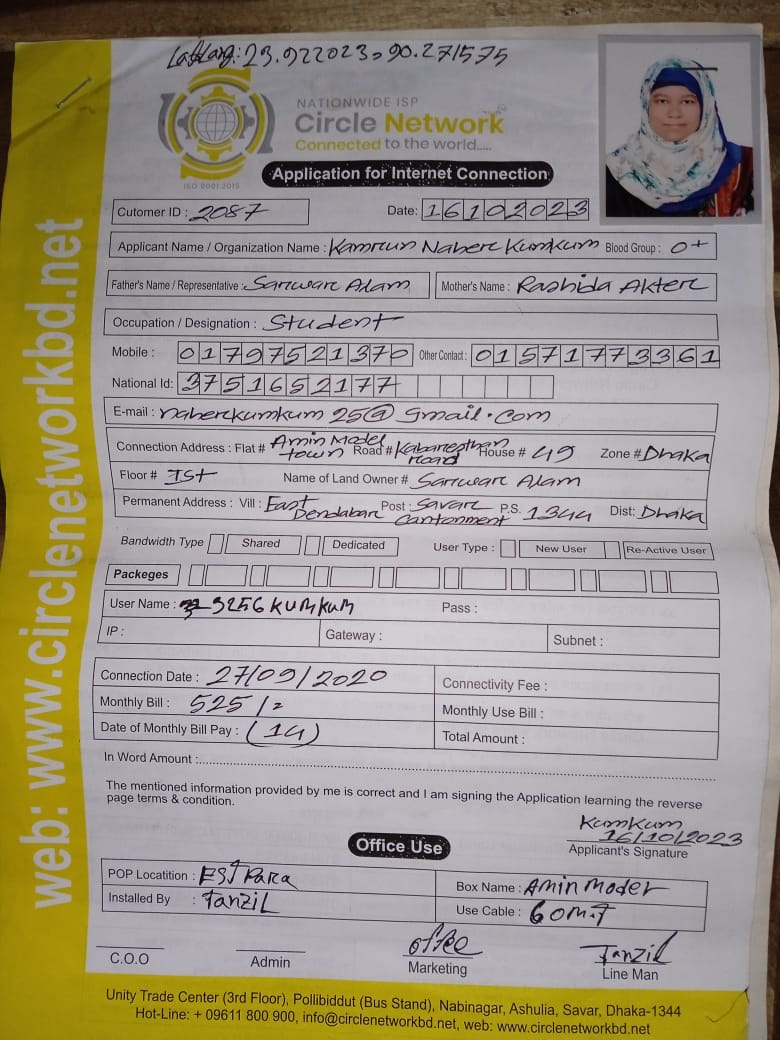 Lat Long: 23.922023, 90.271575
NATIONWIDE ISP
Circle Network
Connected to the world.....
ISO 9001:2015
Application for Internet Connection
Cutomer ID : 2087 Date: 16102023
Applicant Name / Organization Name : Kamrun Naher Kumkum Blood Group : O+
Father's Name / Representative : Sarwar Alam Mother's Name : Rashida Akter
Occupation / Designation : Student
Mobile : 01797521370 Other Contact : 01571773361
National Id: 3751652177
E-mail : naherkumkum25@gmail.com
Connection Address : Flat # Amin Model town Road # Kabaresthan Road House # 49 Zone # Dhaka
Floor # Ist Name of Land Owner # Sarwar Alam
Permanent Address : Vill : East Dendabar Post : Savar Cantonment P.S. 1344 Dist: Dhaka
Bandwidth Type Shared Dedicated User Type : New User Re-Active User
Packeges
User Name : 3256 KUMKUM Pass :
IP : Gateway : Subnet :
Connection Date : 27/09/2020 Connectivity Fee :
Monthly Bill : 525/= Monthly Use Bill :
Date of Monthly Bill Pay : (14) Total Amount :
In Word Amount :
The mentioned information provided by me is correct and I am signing the Application learning the reverse
page terms & condition.
Kumkum
16/10/2023
Applicant's Signature
Office Use
POP Locatition : Para Box Name : Amin Model
Installed By : Tanzil Use Cable : 60m
office Tanzil
C.O.O Admin Marketing Line Man
Unity Trade Center (3rd Floor), Pollibiddut (Bus Stand), Nabinagar, Ashulia, Savar, Dhaka-1344
Hot-Line: + 09611 800 900, info@circlenetworkbd.net, web: www.circlenetworkbd.net
web: www.circlenetworkbd.net